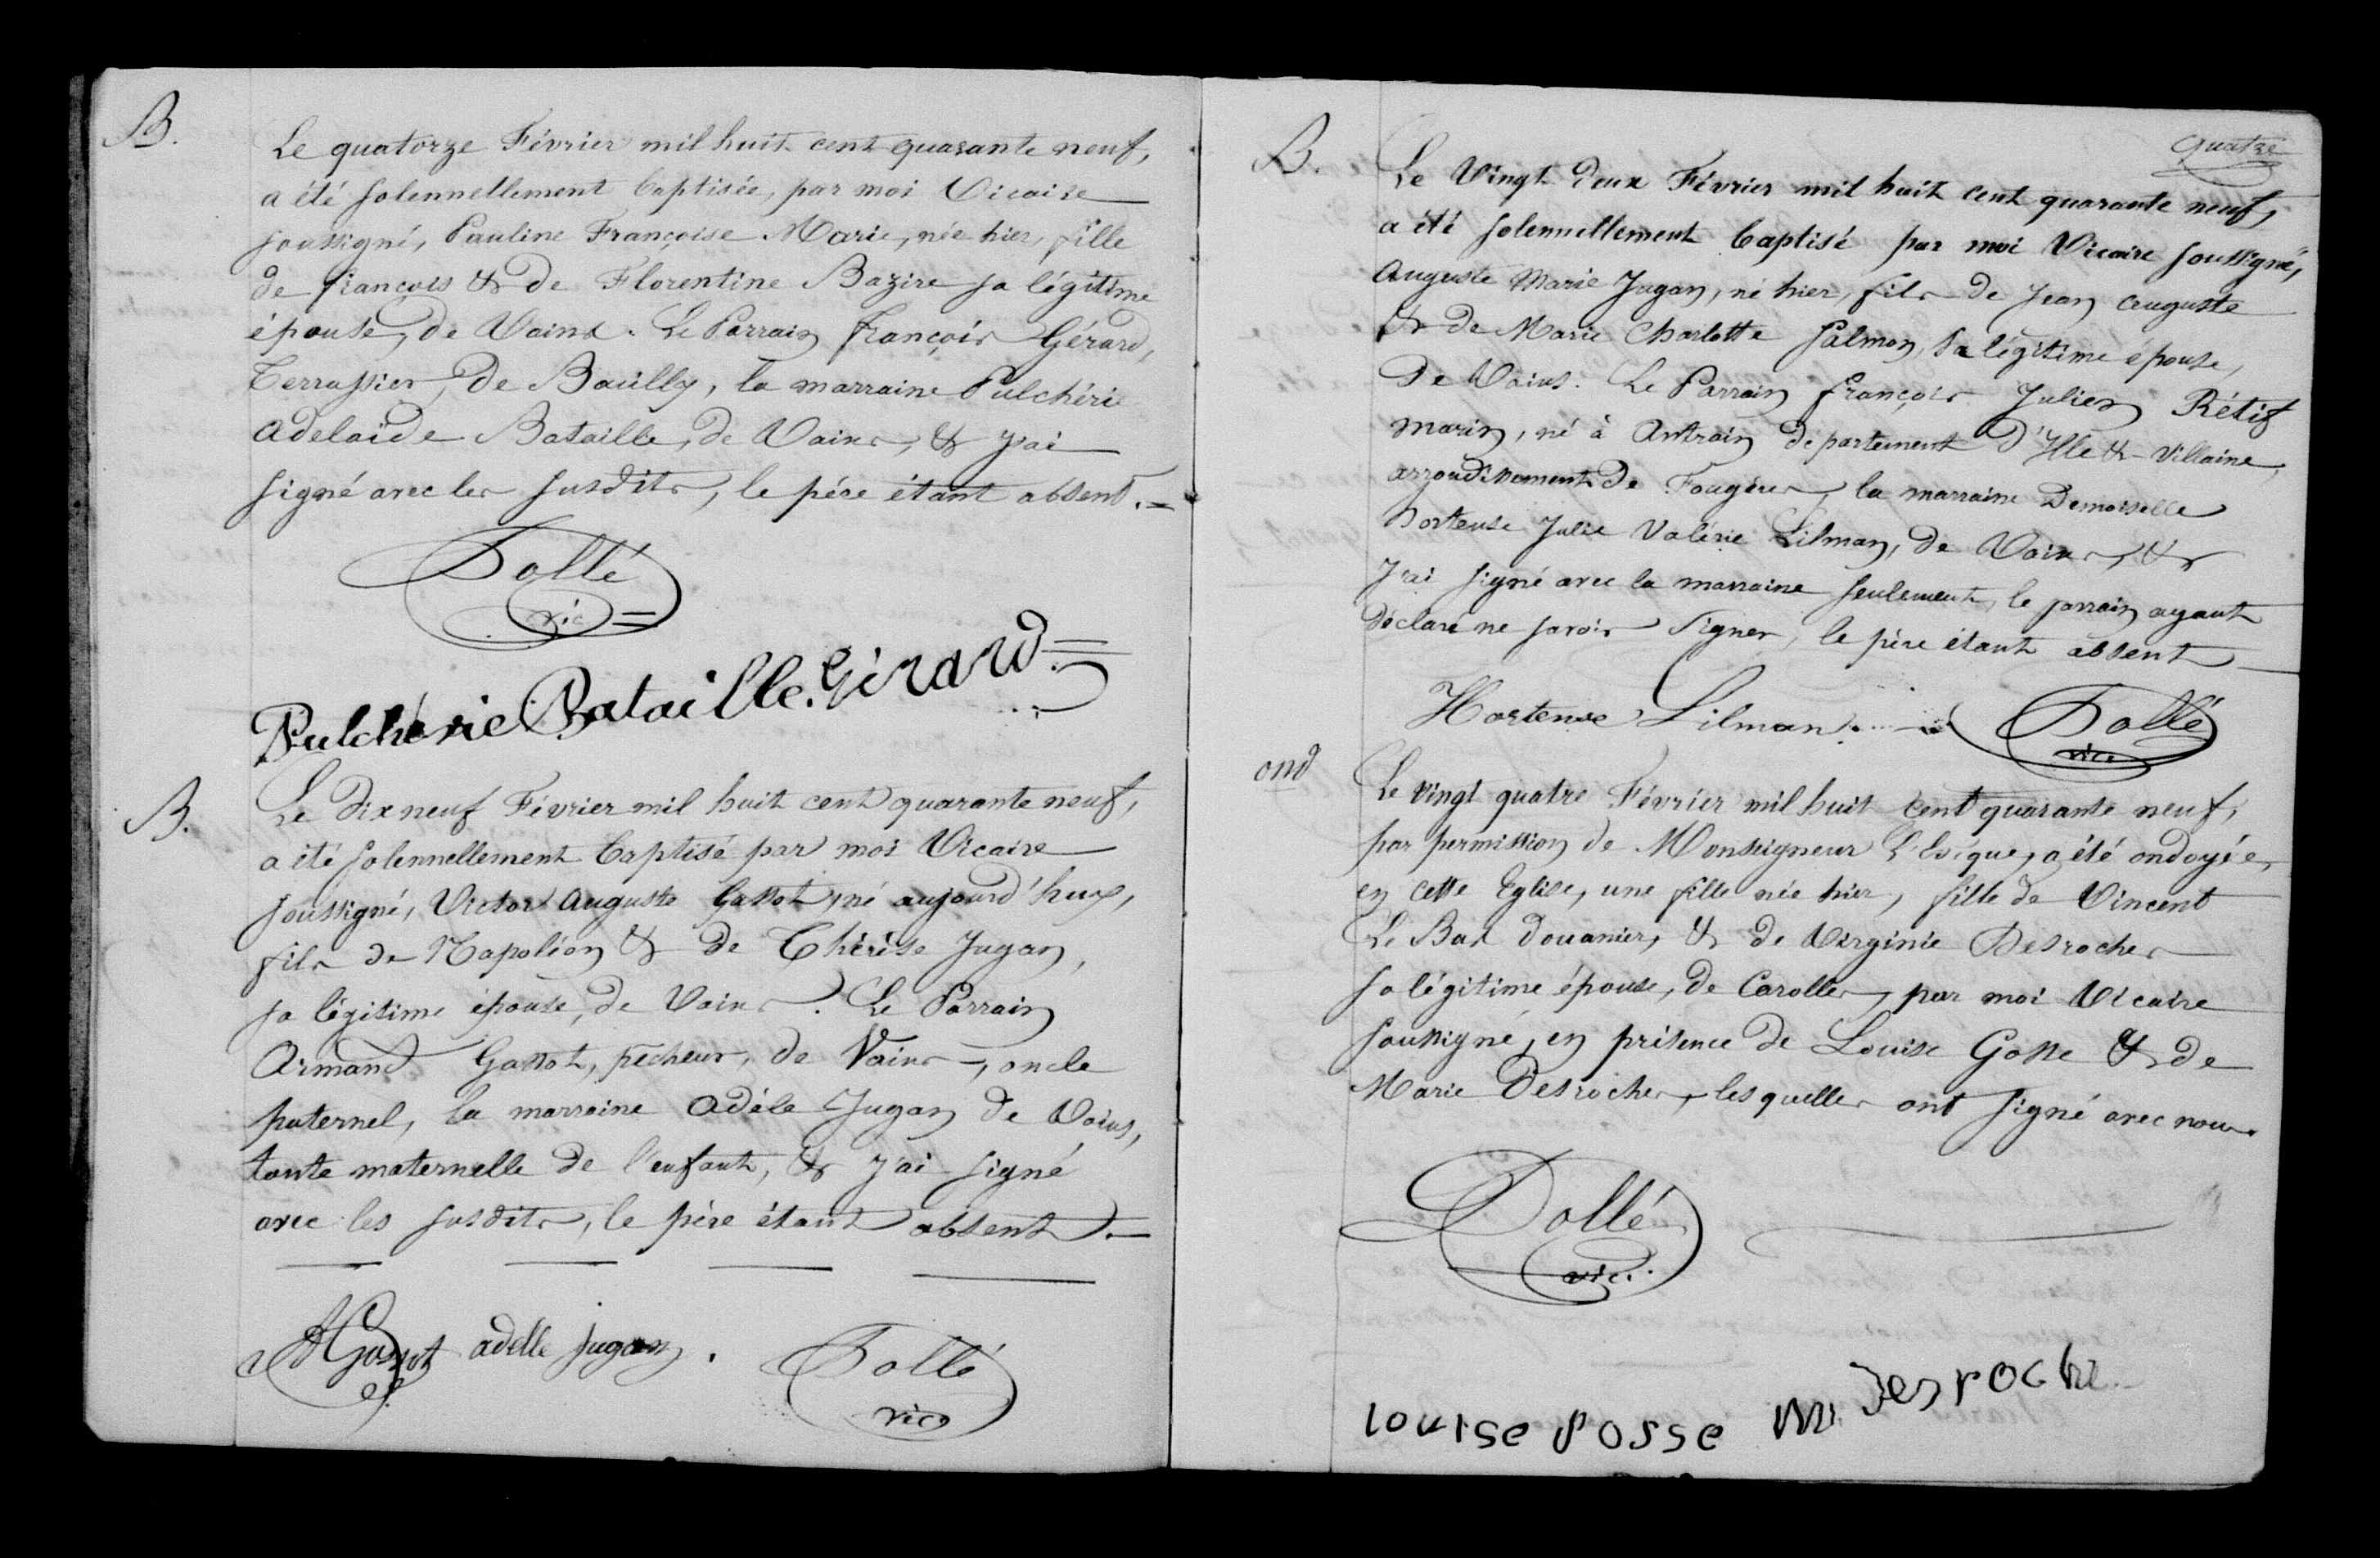 B.
Le quatorze Février mil huit cent quarante neuf,
a été solennellement baptisée, par moi Vicaire
soussigné, Pauline Françoise Marie, née hier, fille
de françois & de Florentine Bazire sa légitime
épouse, de Vains. Le Parrain françois Gérard,
Terrassier, de Bacilly, la marraine Pulchérie
adelaïde Bataille, de Vains, & j'ai
signé avec les susdits, le père étant absent.
Dollé
vic
Pulchérie Bataille. Gérard
B.
Le dix neuf Février mil huit cent quarante neuf,
a été solennellement baptisé par moi Vicaire
soussigné, Victor auguste Gassot, né aujourd'huy,
fils de Napoléon & de Thérèse Jugan,
sa légitime épouse, de Vains. Le Parrain
Armand Gassot, pêcheur, de Vains, oncle
paternel, la marraine adèle Jugan de Vains,
tante maternelle de l'enfant, & j'ai signé
avec les susdits, le père étant absent.
AGassot adelle jugan. Dollé
vice
quatre
B.
Le Vingt deux Février mil huit cent quarante neuf,
a été solennellement baptisé par moi Vicaire soussigné,
auguste Marie Jugan, né hier, fils de Jean auguste
& de Marie Charlotte Salmon, sa légitime épouse,
de Vains. Le Parrain françois Julien Rétif
marin, né à Antrain département d'Ille & Villaine,
arrondissement de Fougères, la marraine Demoiselle
hortense Julie Valérie Lilman, de Vains, &
j'ai signé avec la marraine seulement, le parrain ayant
déclaré ne savoir signer, le père étant absent
Hortense Lilman. Dollé
vice
ond
Le vingt quatre Février mil huit cent quarante neuf,
par permission de Monseigneur L'Evêque, a été ondoyée,
en cette Eglise, une fille née hier, fille de Vincent
Le Bas douanier, & de Virginie Desroches
sa légitime épouse, de Carolles, par moi Vicaire
soussigné, en présence de Louise Gosse & de
Marie Desroches, lesquelles ont signé avec nous.
Dollé
vic.
Louise gosse M. desroche